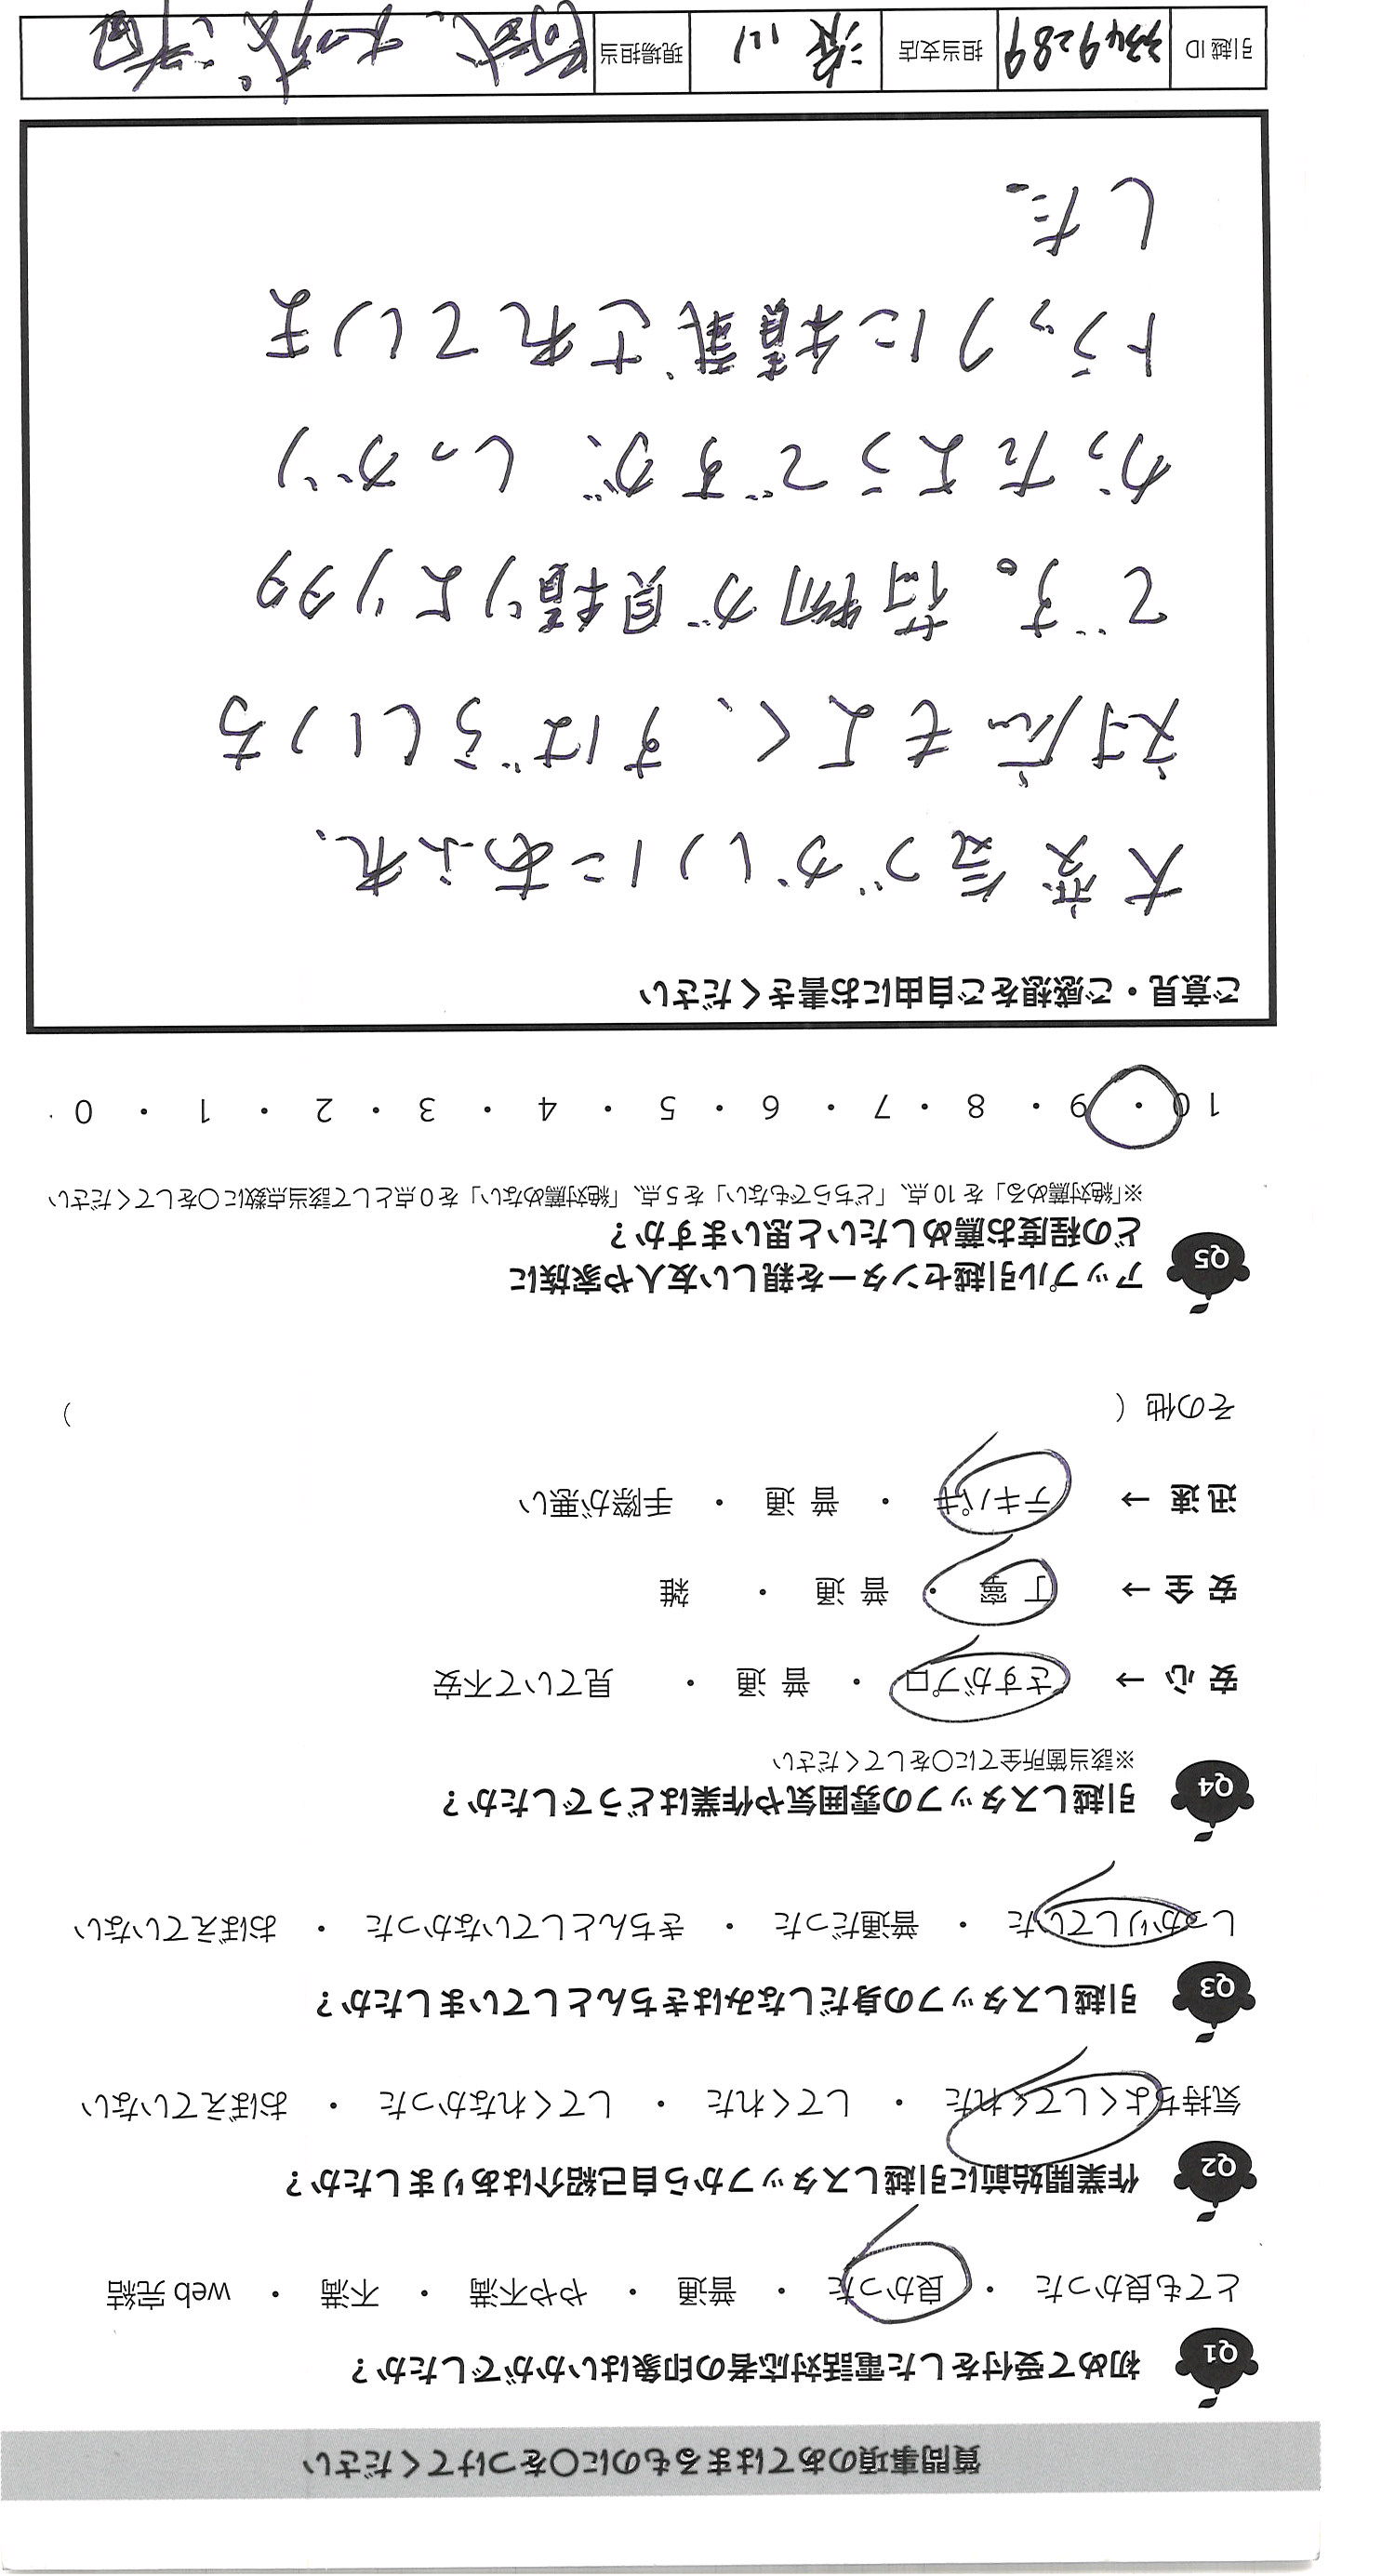 質問事項のあてはまるものに○をつけてください
Q1 初めて受付をした電話対応者の印象はいかがでしたか？
とても良かった ・ 良かった ・ 普通 ・ やや不満 ・ 不満 ・ web 完結
Q2 作業開始前に引越しスタッフから自己紹介はありましたか？
気持ちよくしてくれた ・ してくれた ・ してくれなかった ・ おぼえていない
Q3 引越しスタッフの身だしなみはきちんとしていましたか？
しっかりしていた ・ 普通だった ・ きちんとしていなかった ・ おぼえていない
Q4 引越しスタッフの雰囲気や作業はどうでしたか？
※該当箇所全てに○をしてください
安 心 → さすがプロ ・ 普 通 ・ 見ていて不安
安 全 → 丁 寧 ・ 普 通 ・ 雑
迅 速 → テキパキ ・ 普 通 ・ 手際が悪い
その他（ ）
Q5 アップル引越センターを親しい友人や家族に
どの程度お薦めしたいと思いますか？
※「絶対薦める」を 10 点、「どちらでもない」を 5 点、「絶対薦めない」を 0 点として該当点数に○をしてください
10 ・ 9 ・ 8 ・ 7 ・ 6 ・ 5 ・ 4 ・ 3 ・ 2 ・ 1 ・ 0
ご意見・ご感想をご自由にお書きください
大変気づかいにあふれ、
対応もよく、すばらしいっち
です。荷物が見積りより多
かったようですが、しっかり
トラックに積載されていま
した。
引越 ID 3349289 担当支店 現場担当